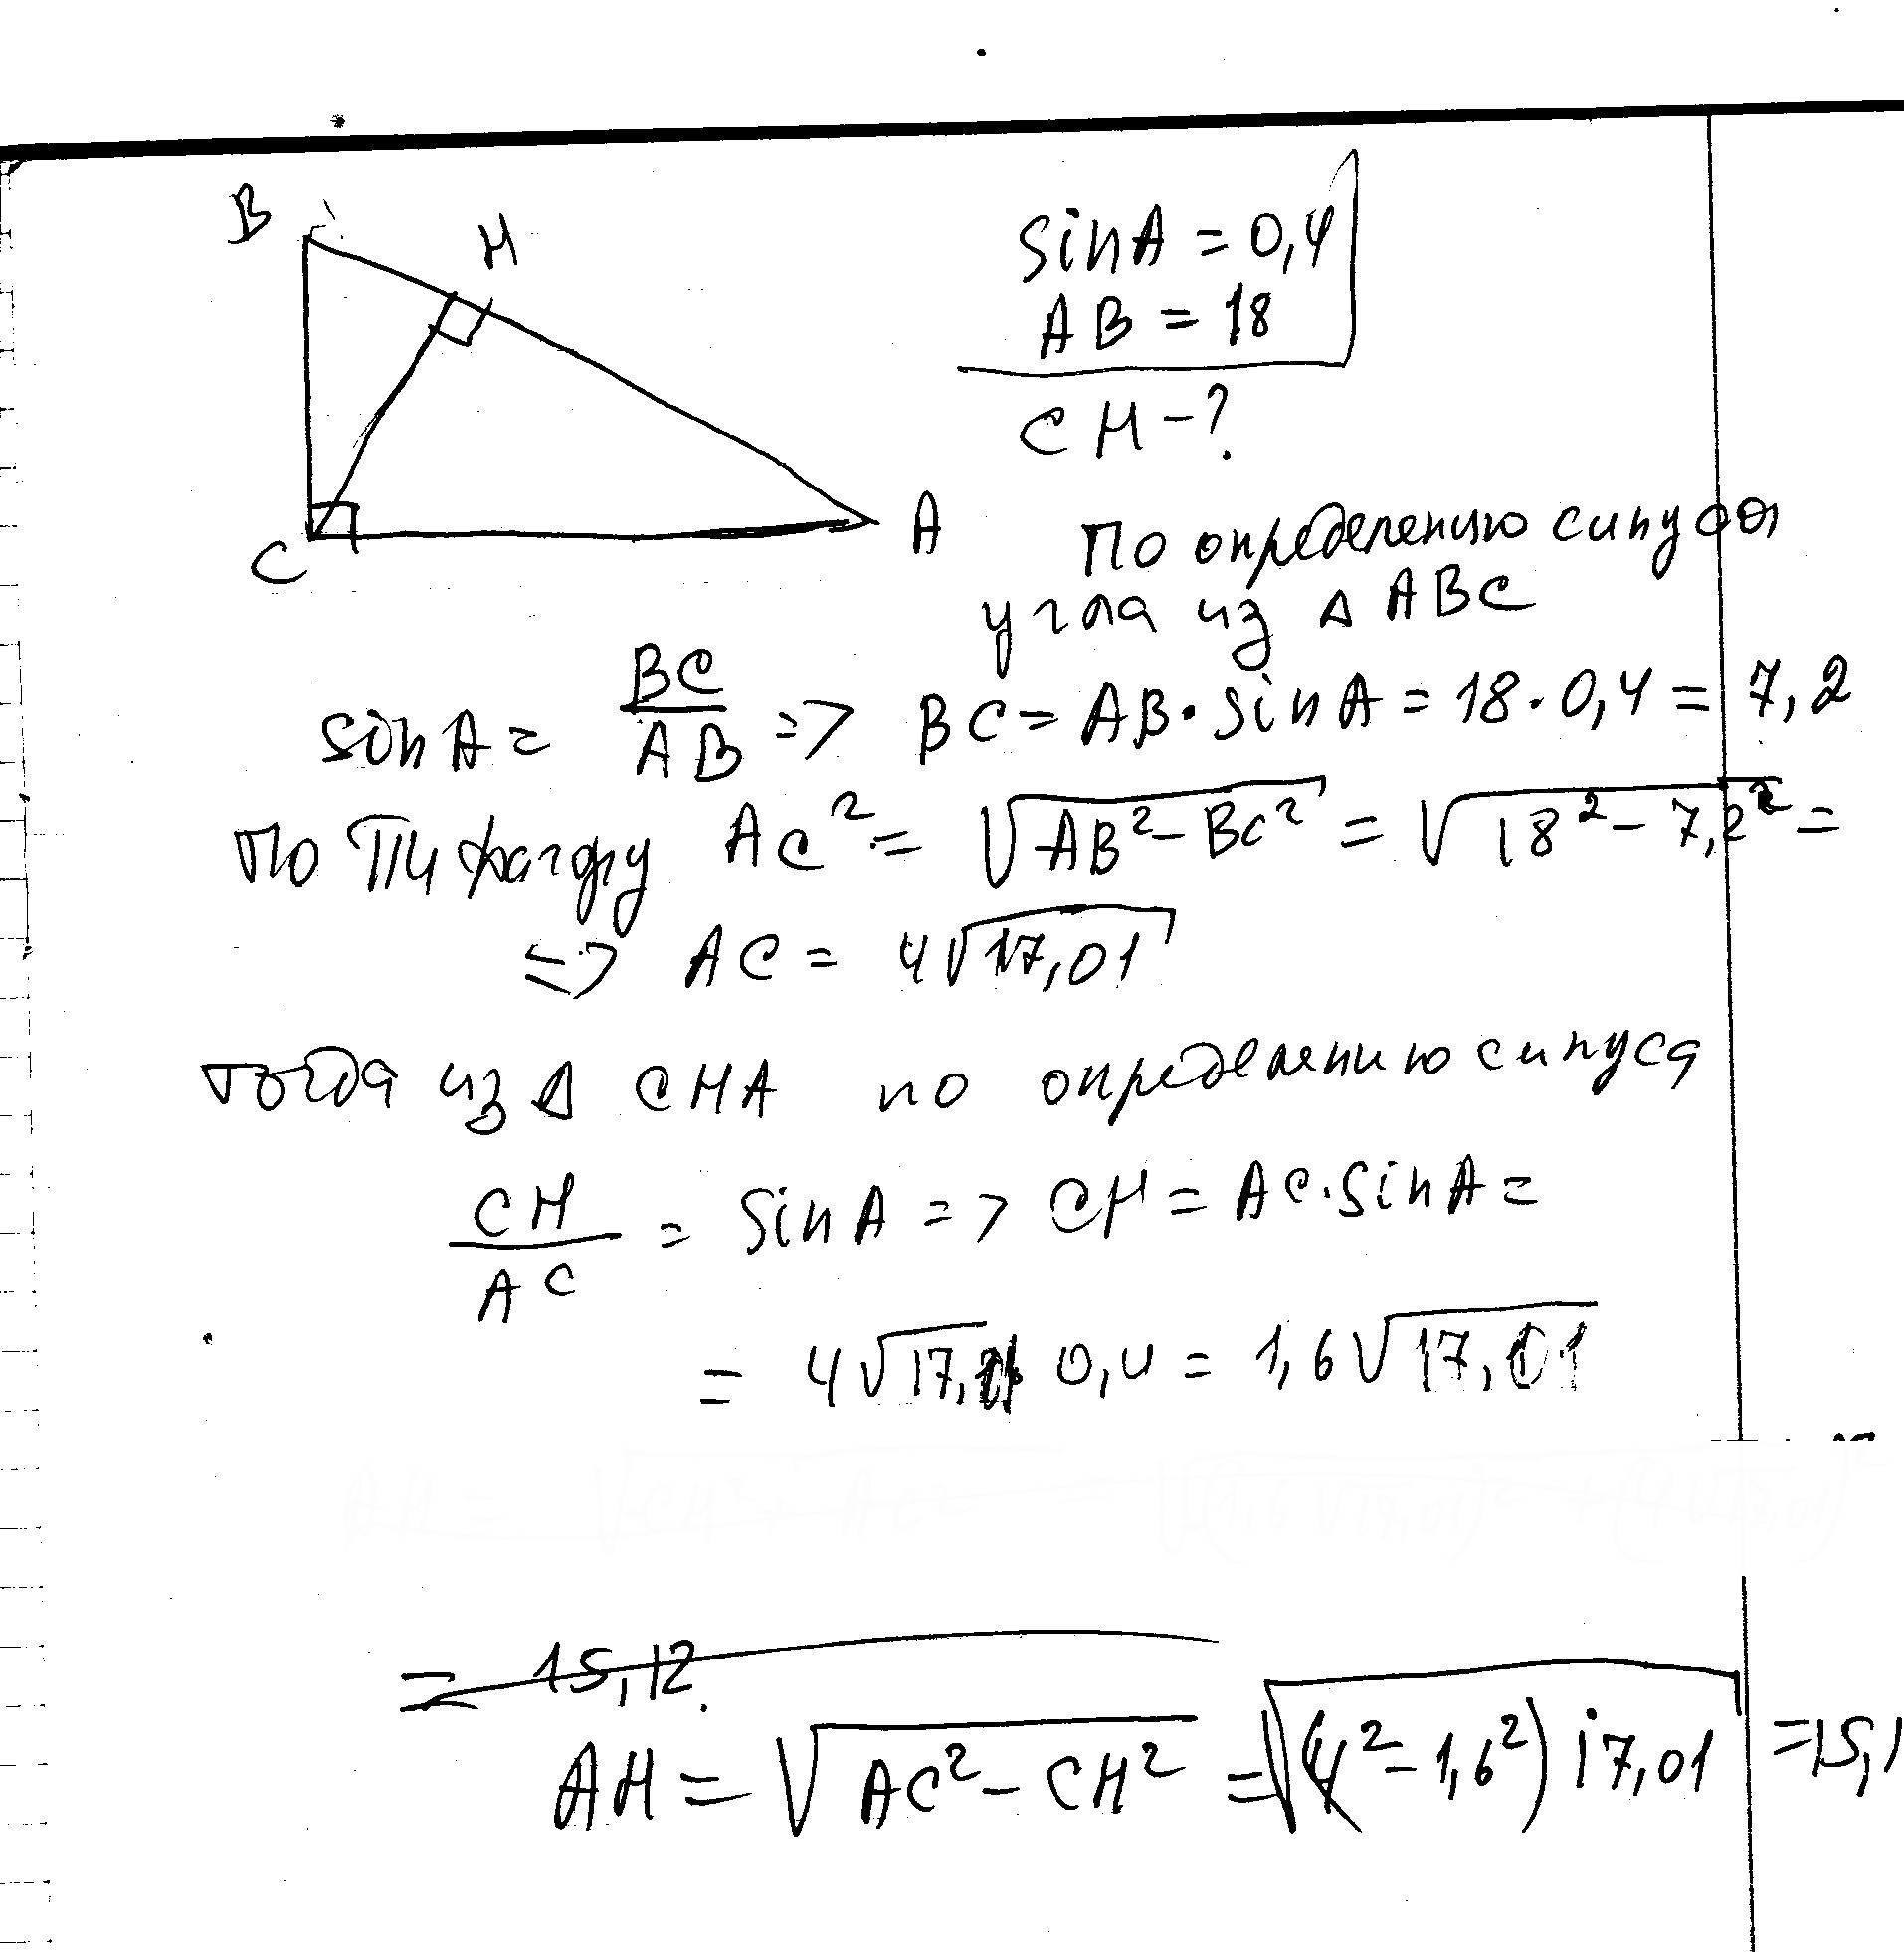 B
H
sin A = 0,4
AB = 18
CH - ?
C
A
По определению синуса
угла из Δ ABC
sin A = BC/AB => BC = AB · sin A = 18 · 0,4 = 7,2
По Пифагору AC² = √(AB² - BC²) = √(18² - 7,2²) =
=> AC = 4√17,01
тогда из Δ CHA по определению синуса
CH/AC = sin A => CH = AC · sin A =
= 4√17,01 0,4 = 1,6√17,01
= 15,12.
AH = √(AC² - CH²) = √((4² - 1,6²) 17,01) = 15,1